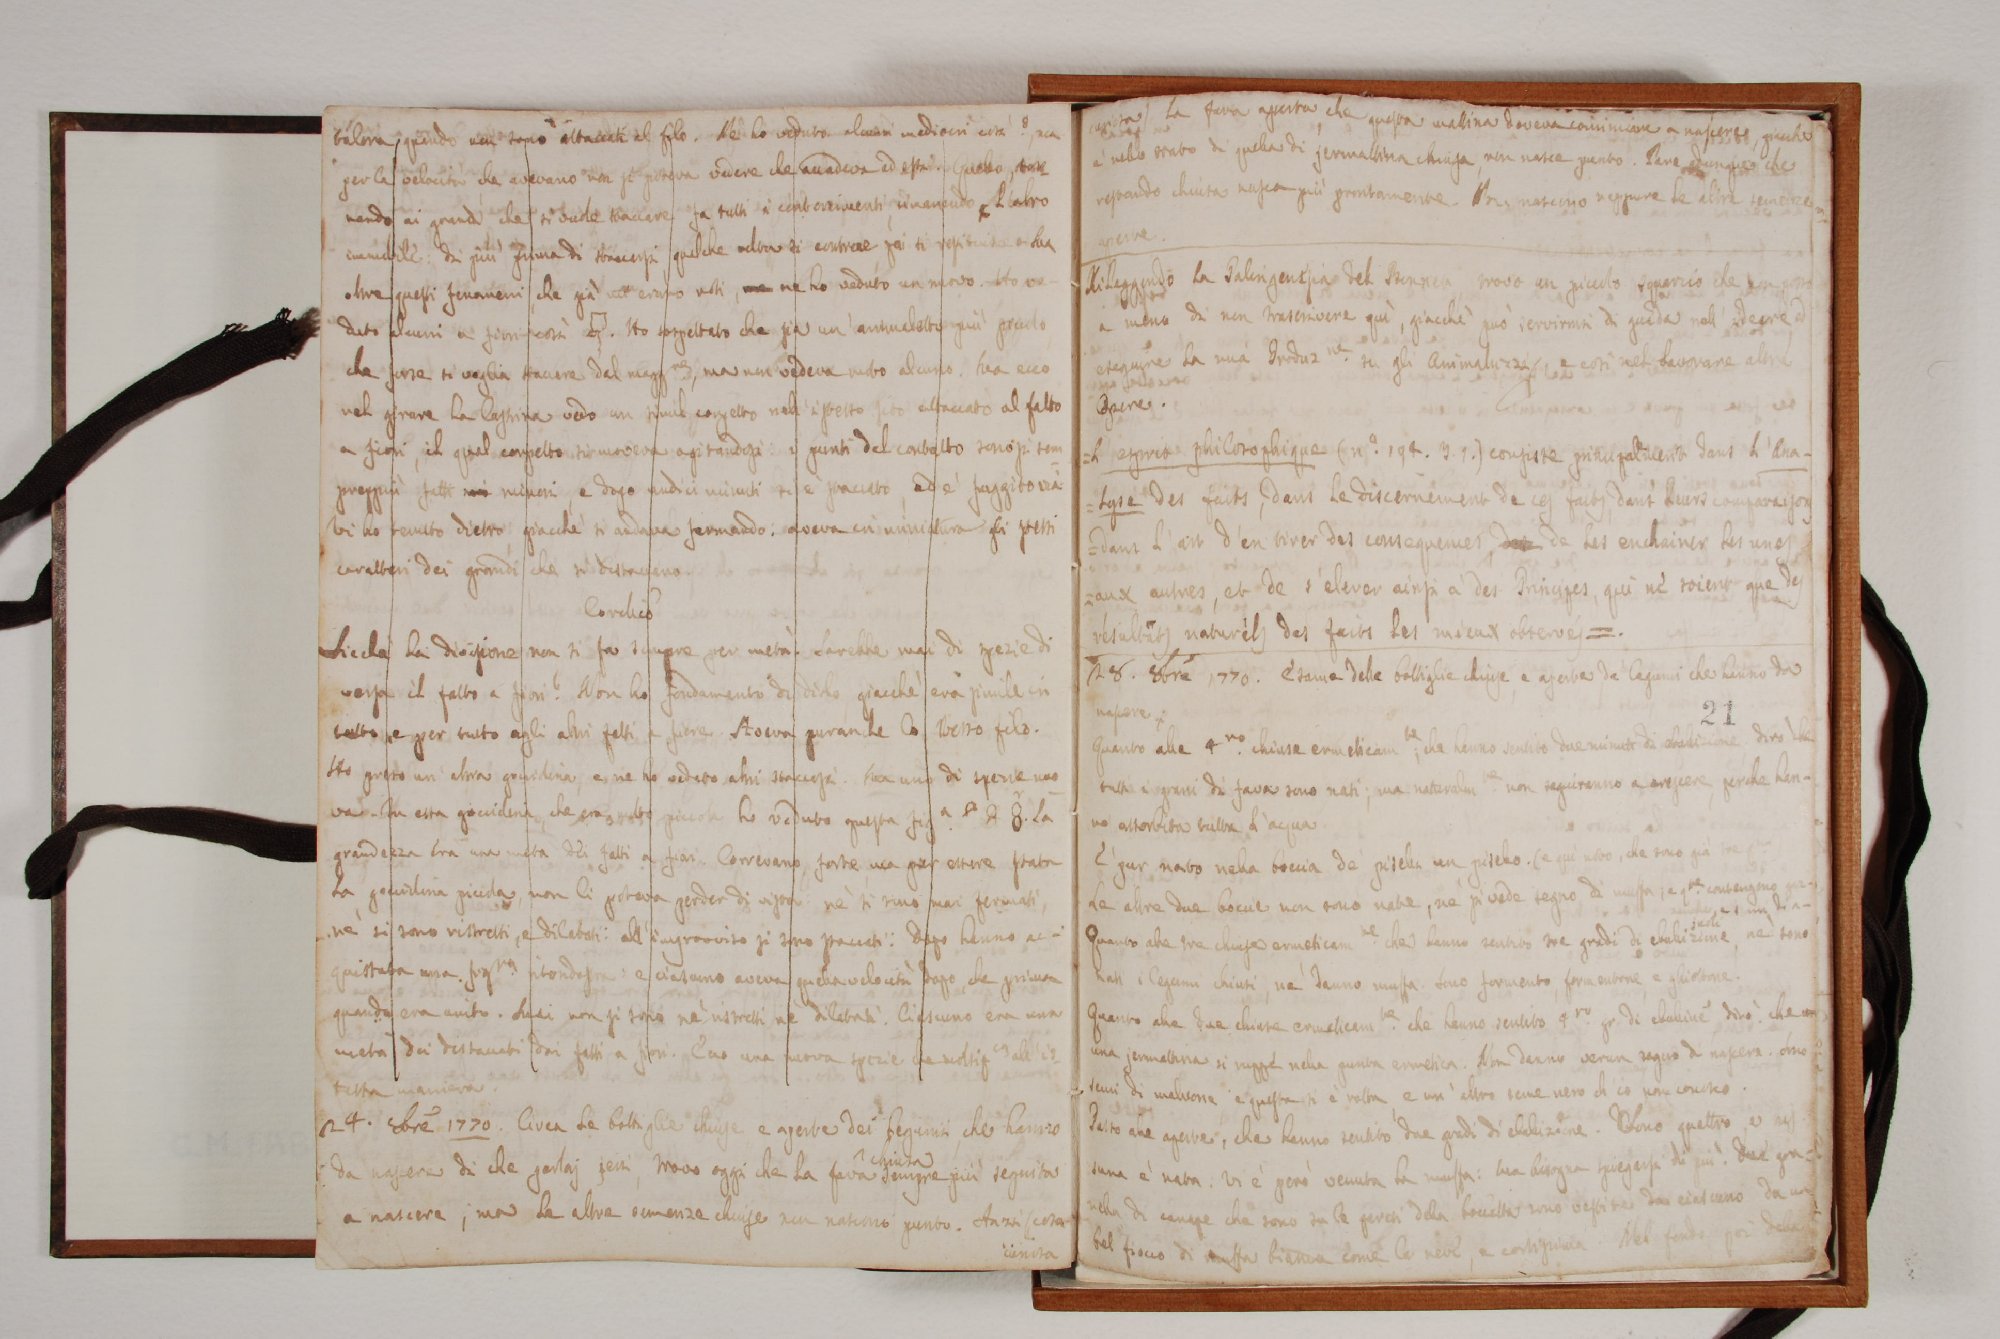 talora, quando non sono attaccati al filo. Ne ho veduto alcuni mediocri così 8, ma
per la velocità che avevano non si poteva vedere che accadeva ad essi.
nendo ai grandi che si vuole staccare fa tutti i contorcimenti, rimanendo l'altro
immobile: di più prima di staccarsi qualche volta si contrae poi si
oltre questi fenomeni, che già mi erano noti, ne ho veduto un nuovo. Ho ve-
duto alcuni a fiori così. Ho sospettato che sia un animaletto più piccolo,
che forse si voglia staccare dal magg.re, ma non vedeva moto alcuno. Ma ecco
nel girare la lastrina vedo un simil corpetto nell'istesso sito attaccato al fatto
a fiori, il qual corpetto si moveva agitandosi: i punti del contatto sonosi sem
preppiù fatti minori e dopo undici minuti si è staccato, ed è fuggito via
Vi ho tenuto dietro giacchè si andava fermando: aveva in miniatura gli stessi
caratteri dei grandi che si distaccano.
Corollio
Sicchè la divisione non si fa sempre per metà. Sarebbe mai di spezie di
versa il fatto a fiori? Non ho fondamento di dirlo, giacchè era simile in
tutto, e per tutto agli altri fatti a fiore. Aveva puranche lo stesso filo.
Ho preso un'altra gocciolina, e ne ho veduto altri staccarsi. Ma uno di spezie nuo
va. In esta gocciolina, che era molto piccola ho veduto questa fig.a 8. La
grandezza era una metà dei fatti a fiori. Correvano forte, ma per essere stata
la gocciolina piccola, non li poteva perder di vista: nè si sono mai fermati,
nè si sono ristretti, e dilatati: all'improvviso si sono staccati: Dopo hanno ac-
quistata una fig.ra ritondastra: e ciascuno aveva quella velocità dopo, che prima
quando era unito. Mai non si sono nè ristretti nè dilatati. Ciascuno era una
metà dei distaccati dai fatti a fiori. Ecco una nuova spezie che moltip.ca all'is
tessa maniera.
24. 8bre 1770. Circa le bottiglie chiuse e aperte dei legumi, che hanno
da nascere di che parlai jeri, trovo oggi che la fava chiusa sempre più seguita
a nascere; ma le altre semenze chiuse non nascono punto. Anzi (cosa
curiosa
curiosa) la fava aperta, che questa mattina doveva cominciare a nascere, giacchè
è nello stato di quella di jermattina chiusa, non nasce punto. Pare dunque che
restando chiusa nasca più prontamente. Non nascono neppure le altre semenze
aperte.
Rileggendo la Palingenesia del Bonnet, trovo un piccolo squarcio che non posso
a meno di non trascrivere qui, giacchè può servirmi di guida nell'idear ed
eseguire la mia Produz.ne su gli Animaluzzi, e così nel lavorare altre
Opere.
=L'esprit philosophique (n.o 194. 3. 1.) consiste principalement dans l'Ana-
=lyse des faits, dans le discernement de ces faits, dans leurs comparaisons
=dans l'art d'en tirer des consequences, de les enchainer les unes
=aux autres, et de s'elever ainsi à des Principes, qui ne soient que des
résultats naturels des faits les mieux observés=.
28. 8bre 1770. Esame delle bottiglie chiuse, e aperte de' legumi che hanno da
nascere.
21
Quanto alle 4.ro chiuse ermeticam.te, che hanno sentito due minuti di ebullizione dirò che
tutti i grani di fava sono nati; ma naturalm.te non seguiranno a crescere, perchè han-
no assorbita tutta l'acqua.
È pur nato nella boccia de' piselli un pisello. (e qui noto, che sono già tre
Le altre due bocce non sono nate, nè si vede segno di muffa; e q.te contengono
Quanto alle tre chiuse ermeticam.te che hanno sentito tre gradi di ebullizione, nè sono
nati i legumi chiusi, nè danno muffa. Sono formento, formentone, e
Quanto alle due chiuse ermeticam.te che hanno sentito 4.ro gr. di ebulliz.e dirò che
una jermattina si ruppe nella punta ermetica. Non danno verun segno di nascere. Sono
semi di melone e questa si è rotta e un'altro seme nero ch'io non conosco.
Passo alle aperte, che hanno sentito due gradi di ebullizione. Sono quattro, e nes-
suna è nata. Vi è però venuta la muffa: ma bisogna spiegarsi di più. Due gra-
nella di canape che sono su le pareti della boccetta sono vestite da ciascuno da un
bel fiocco di muffa bianca come la neve, e cortissima. Nel fondo poi della